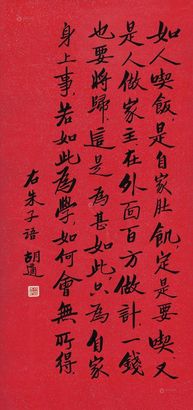 如人喫飯是自家肚飢定是要喫又
是人做家主在外面百方做計一錢
也要將歸這是為甚如此只為自家
身上事若如此為學如何會無所得
右朱子語 胡適